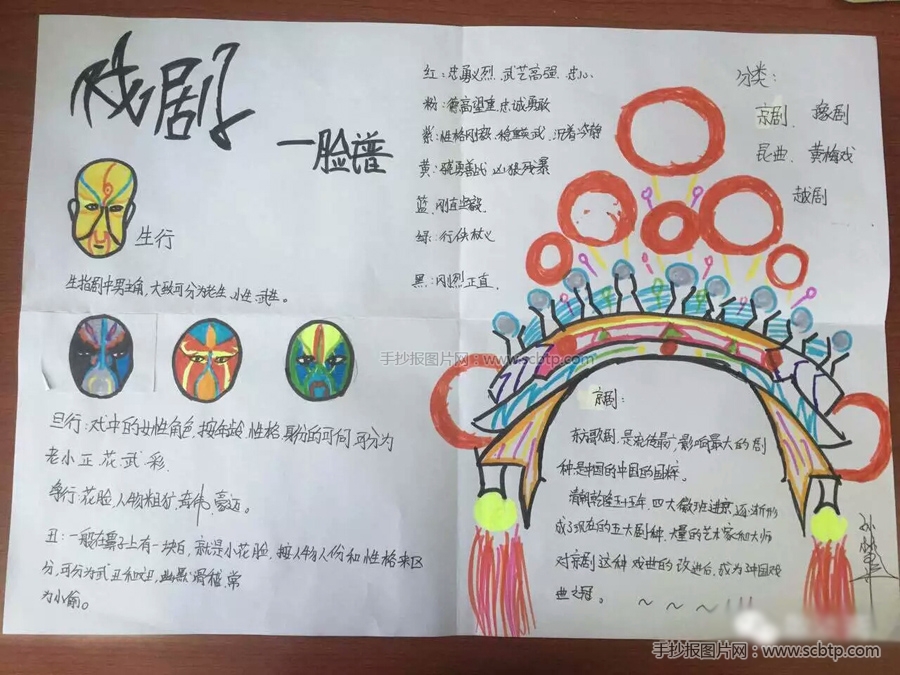 戏剧
一脸谱
生行
生指剧中男主角,大致可分为老生、小生、武生。
旦行:戏中的女性角色,按年龄、性格、身份的可同可分为
老小正花武彩.
净行:花脸,人物粗犷,奇伟、豪迈。
丑:一般在鼻子上有一块白,就是小花脸,按人物人份和性格来区
分,可分为武丑和文丑,幽默滑稽,常
为小偷。
红:忠勇义烈 武艺高强 忠心
粉:德高望重忠诚勇敢
紫:性格刚毅 稳重英武 沉着冷静
黄:骁勇善战 凶狠残暴
蓝:刚直
绿:行侠仗义
黑:刚烈正直.
分类:
京剧、豫剧
昆曲、黄梅戏
越剧
京剧:
东方歌剧,是流传最广,影响最大的剧
种是中国的中国的国粹。
清朝乾隆五十五年,四大徽班进京,逐渐形
成了现在的五大剧种,大量的艺术家和大师
对京剧这种戏曲的改进后,成为中国戏
曲之冠。
手抄报图片网:www.scbtp.com
手抄报图片网:www.scbtp.com